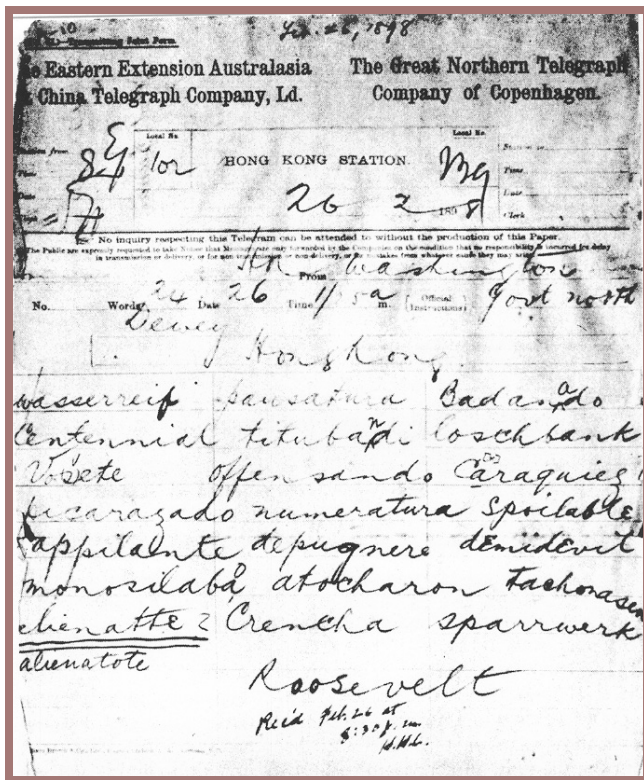 Feb. 26, 1898
Eastern Extension Australasia
China Telegraph Company, Ld.
The Great Northern Telegraph
Company of Copenhagen.
Local No.
102
HONG KONG STATION.
Local No.
Station to
Time
Date
Clerk
26 2 1898
No inquiry respecting this Telegram can be attended to without the production of this Paper.
The Public are expressly requested to take Notice that Messages are only forwarded by the Companies on the condition that no responsibility is incurred for delay
in transmission or delivery, or for non-transmission or non-delivery, or for mistakes from whatever cause they may arise.
From Washington
No. Words 24 Date 26 Time m. (Official Instructions) Govt north
Dewey
Hongkong
wasserreif pausatura Badanado
Centennial titubandi loschbank
Vosete offensando Caraquiez
picarazado numeratura Spoilable
appilante depugnere demidevit
monosilabo atocharon tachonasen
alienatte ? Crencha sparrwerk
alienatote
Roosevelt
Rec'd Feb. 26 at
8:30 p.m.